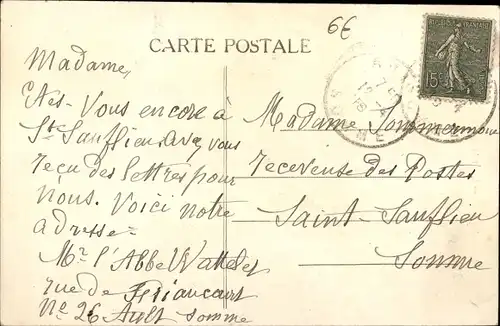 6€
CARTE POSTALE
15c
Madame,
Êtes-Vous encore à
St Sauflieu, avez vous
reçu des lettres pour
nous. Voici notre
adresse:
Mr l'Abbé Wattelet
rue de Friaucourt
No 26 Ault Somme
Madame
Receveuse des Postes
Saint-Sauflieu
Somme